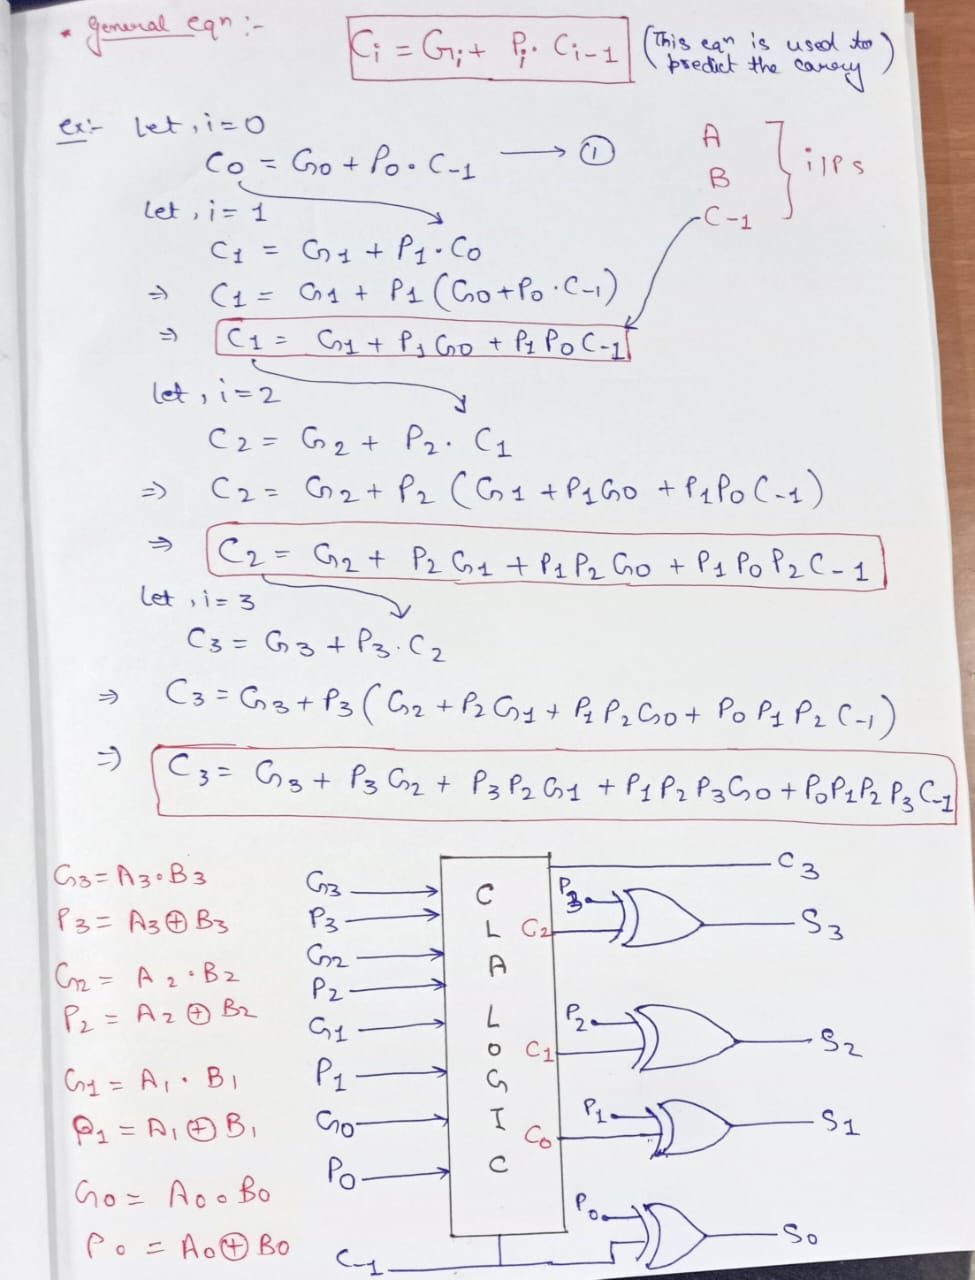 * General eqn :-
Ci = Gi + Pi. Ci-1 (This eqn is used to predict the carry)
ex:- Let, i=0
C0 = G0 + P0 . C-1 → ①
A
B
C-1
i/Ps
let, i = 1
C1 = G1 + P1 . C0
⇒ C1 = G1 + P1 (G0+P0 . C-1)
⇒ C1 = G1 + P1 G0 + P1 P0 C-1
let, i=2
C2 = G2 + P2 . C1
⇒ C2 = G2 + P2 (G1 + P1G0 + P1P0 C-1)
⇒ C2 = G2 + P2 G1 + P1 P2 G0 + P1 P0 P2 C-1
let, i = 3
C3 = G3 + P3 . C2
⇒ C3 = G3 + P3 (G2 + P2 G1 + P1 P2 G0 + P0 P1 P2 C-1)
⇒ C3 = G3 + P3 G2 + P3 P2 G1 + P1 P2 P3 G0 + P0P1P2 P3 C-1
G3 = A3 . B3
P3 = A3 ⊕ B3
G2 = A2 . B2
P2 = A2 ⊕ B2
G1 = A1 . B1
P1 = A1 ⊕ B1
G0 = A0 . B0
P0 = A0 ⊕ B0
G3
P3
G2
P2
G1
P1
G0
P0
C-1
CLA LOGIC
C3
C2
P3
S3
P2
C1
S2
P1
C0
S1
P0
S0